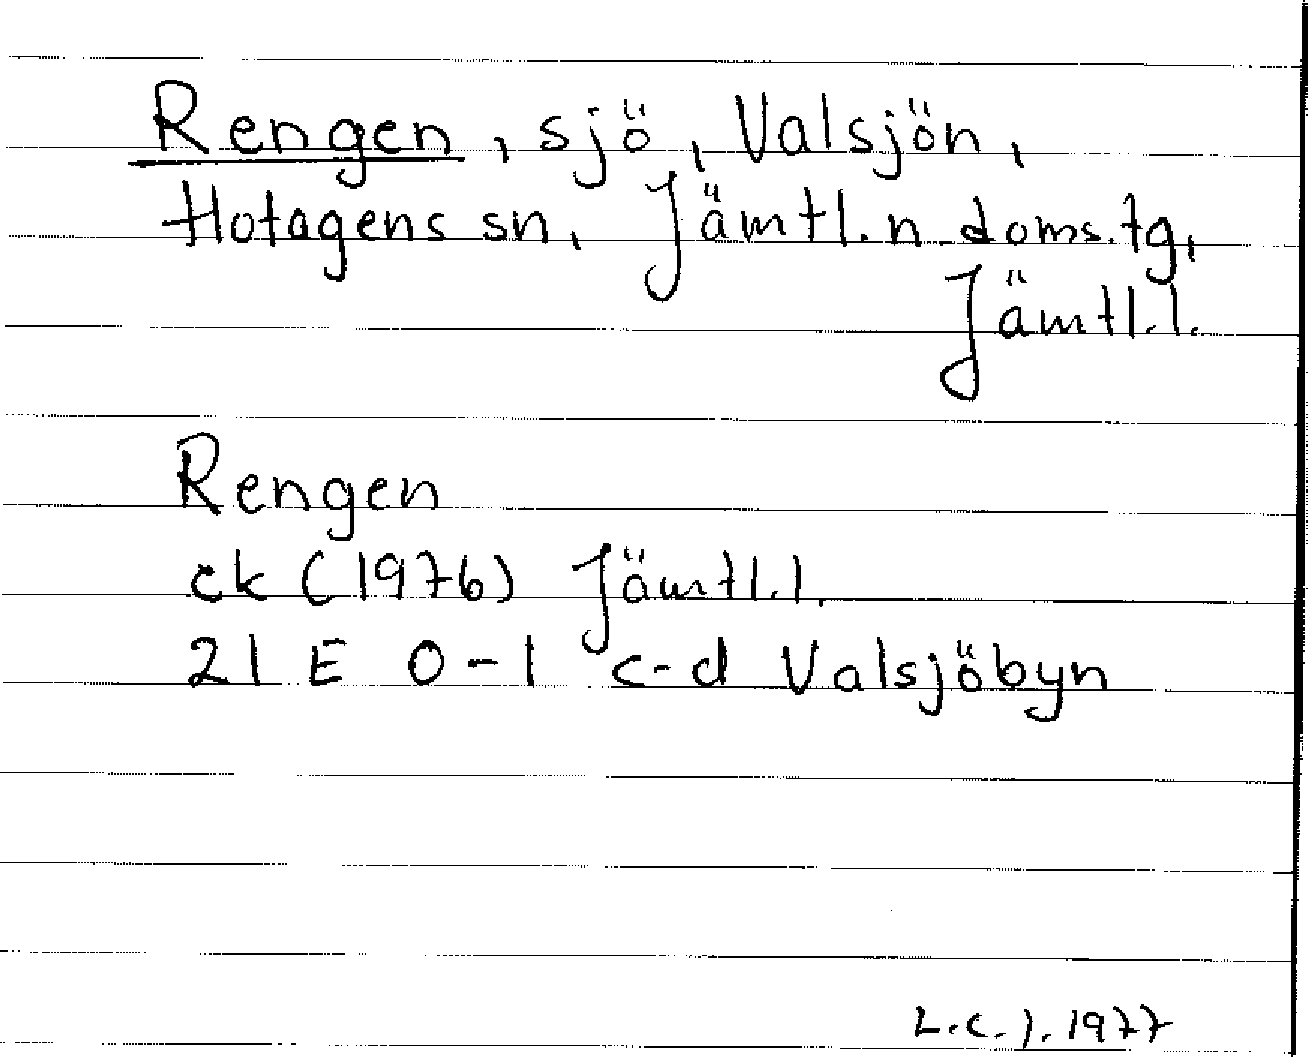 Rengen, sjö, Valsjön,
Hotagens sn, Jämtl. n. doms.tg,
Jämtl.l.
Rengen
ek (1976) Jämtl.l.
21 E 0-1 c-d Valsjöbyn
L.C.J. 1977